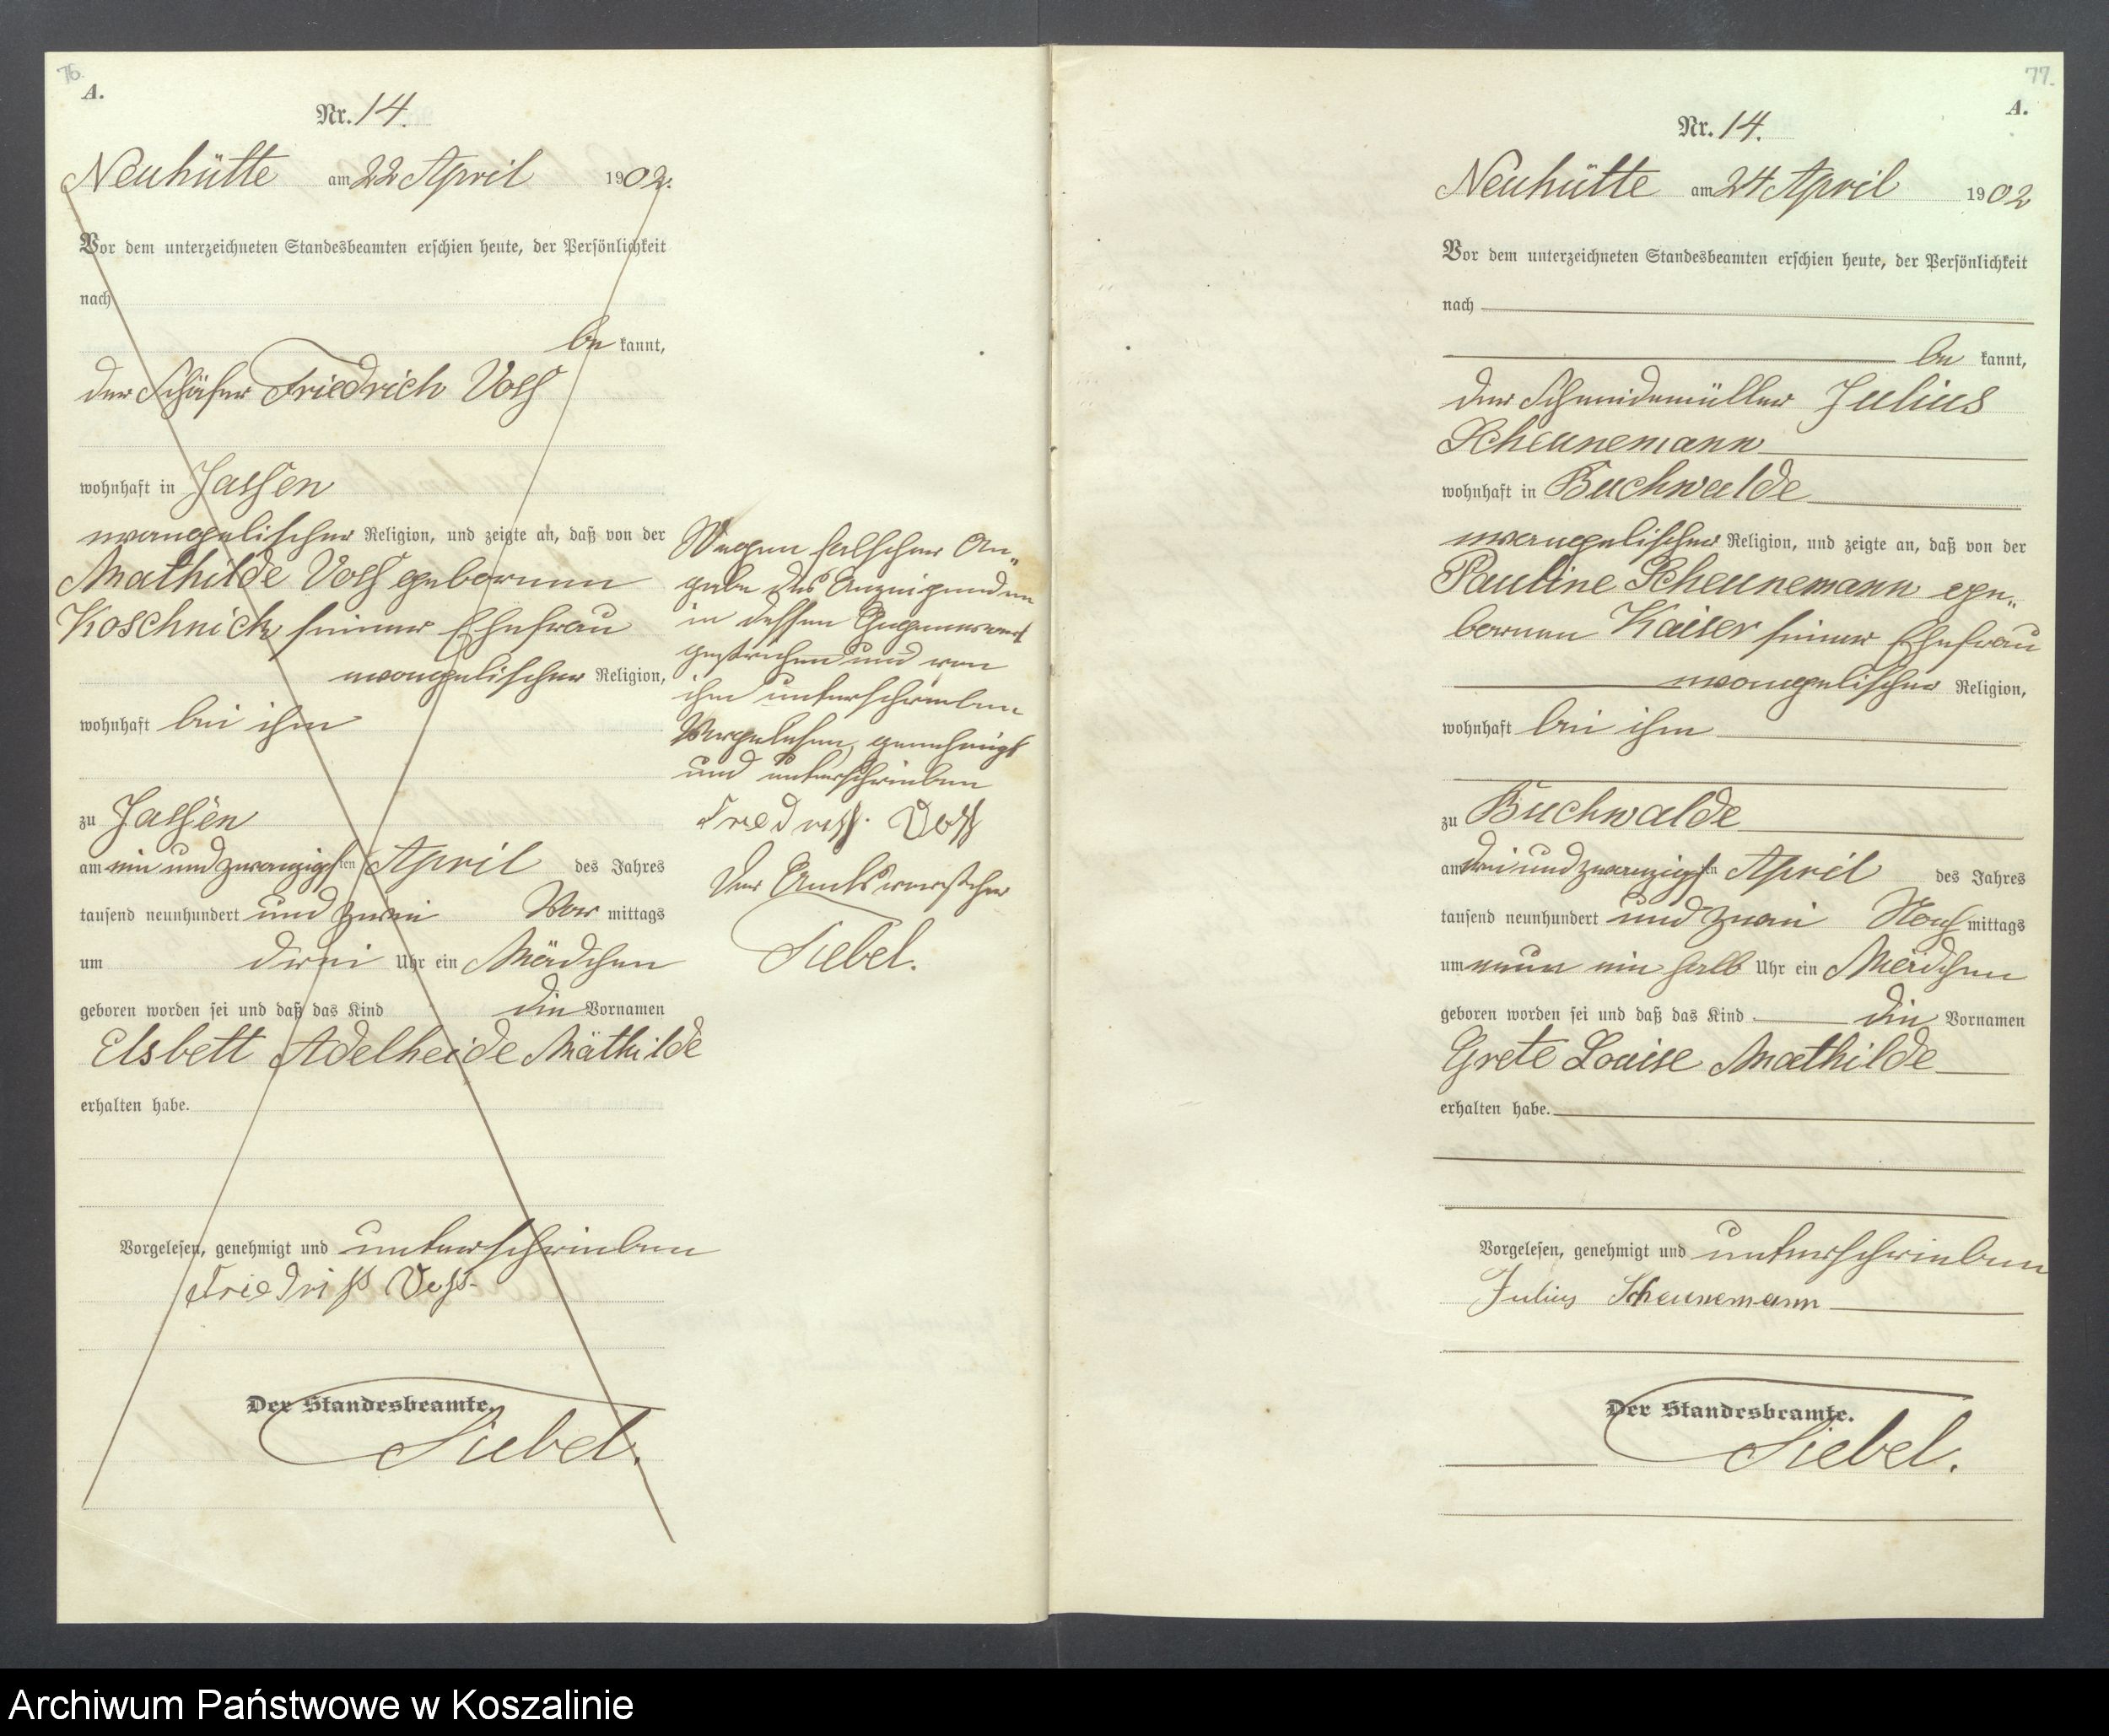 76.
A.
Nr. 14.
Neuhütte am 22 April 1902.
Vor dem unterzeichneten Standesbeamten erschien heute, der Persönlichkeit
nach
be kannt,
der Schäfer Friedrich Voß
wohnhaft in Jassen
evangelischer Religion, und zeigte an, daß von der
Mathilde Voß geborenen
Koschnick seiner Ehefrau
evangelischer Religion,
wohnhaft bei ihm
zu Jassen
am ein und zwanzigsten April des Jahres
tausend neunhundert und zwei Vor mittags
um drei Uhr ein Mädchen
geboren worden sei und daß das Kind die Vornamen
Elsbett Adelheide Mathilde
erhalten habe.
Vorgelesen, genehmigt und unterschrieben
Friedrich Voß
Der Standesbeamte.
Siebel.
Wegen falscher An„
gabe des Anzeigenden
in dessen Gegenwart
gestrichen und von
ihm unterschrieben
Vorgelesen, genehmigt
und unterschrieben
Friedrich Voß
Der Amtsvorsteher
Siebel.
77.
A.
Nr. 14.
Neuhütte am 24 April 1902
Vor dem unterzeichneten Standesbeamten erschien heute, der Persönlichkeit
nach
be kannt,
der Schneidemüller Julius
Scheunemann
wohnhaft in Buchwalde
evangelischer Religion, und zeigte an, daß von der
Pauline Scheunemann ge„
bornen Kaiser seiner Ehefrau
evangelischer Religion,
wohnhaft bei ihm
zu Buchwalde
am drei und zwanzigsten April des Jahres
tausend neunhundert und zwei Nach mittags
um neun ein halb Uhr ein Mädchen
geboren worden sei und daß das Kind die Vornamen
Grete Louise Mathilde
erhalten habe.
Vorgelesen, genehmigt und unterschrieben
Julius Scheunemann
Der Standesbeamte.
Siebel.
Archiwum Państwowe w Koszalinie